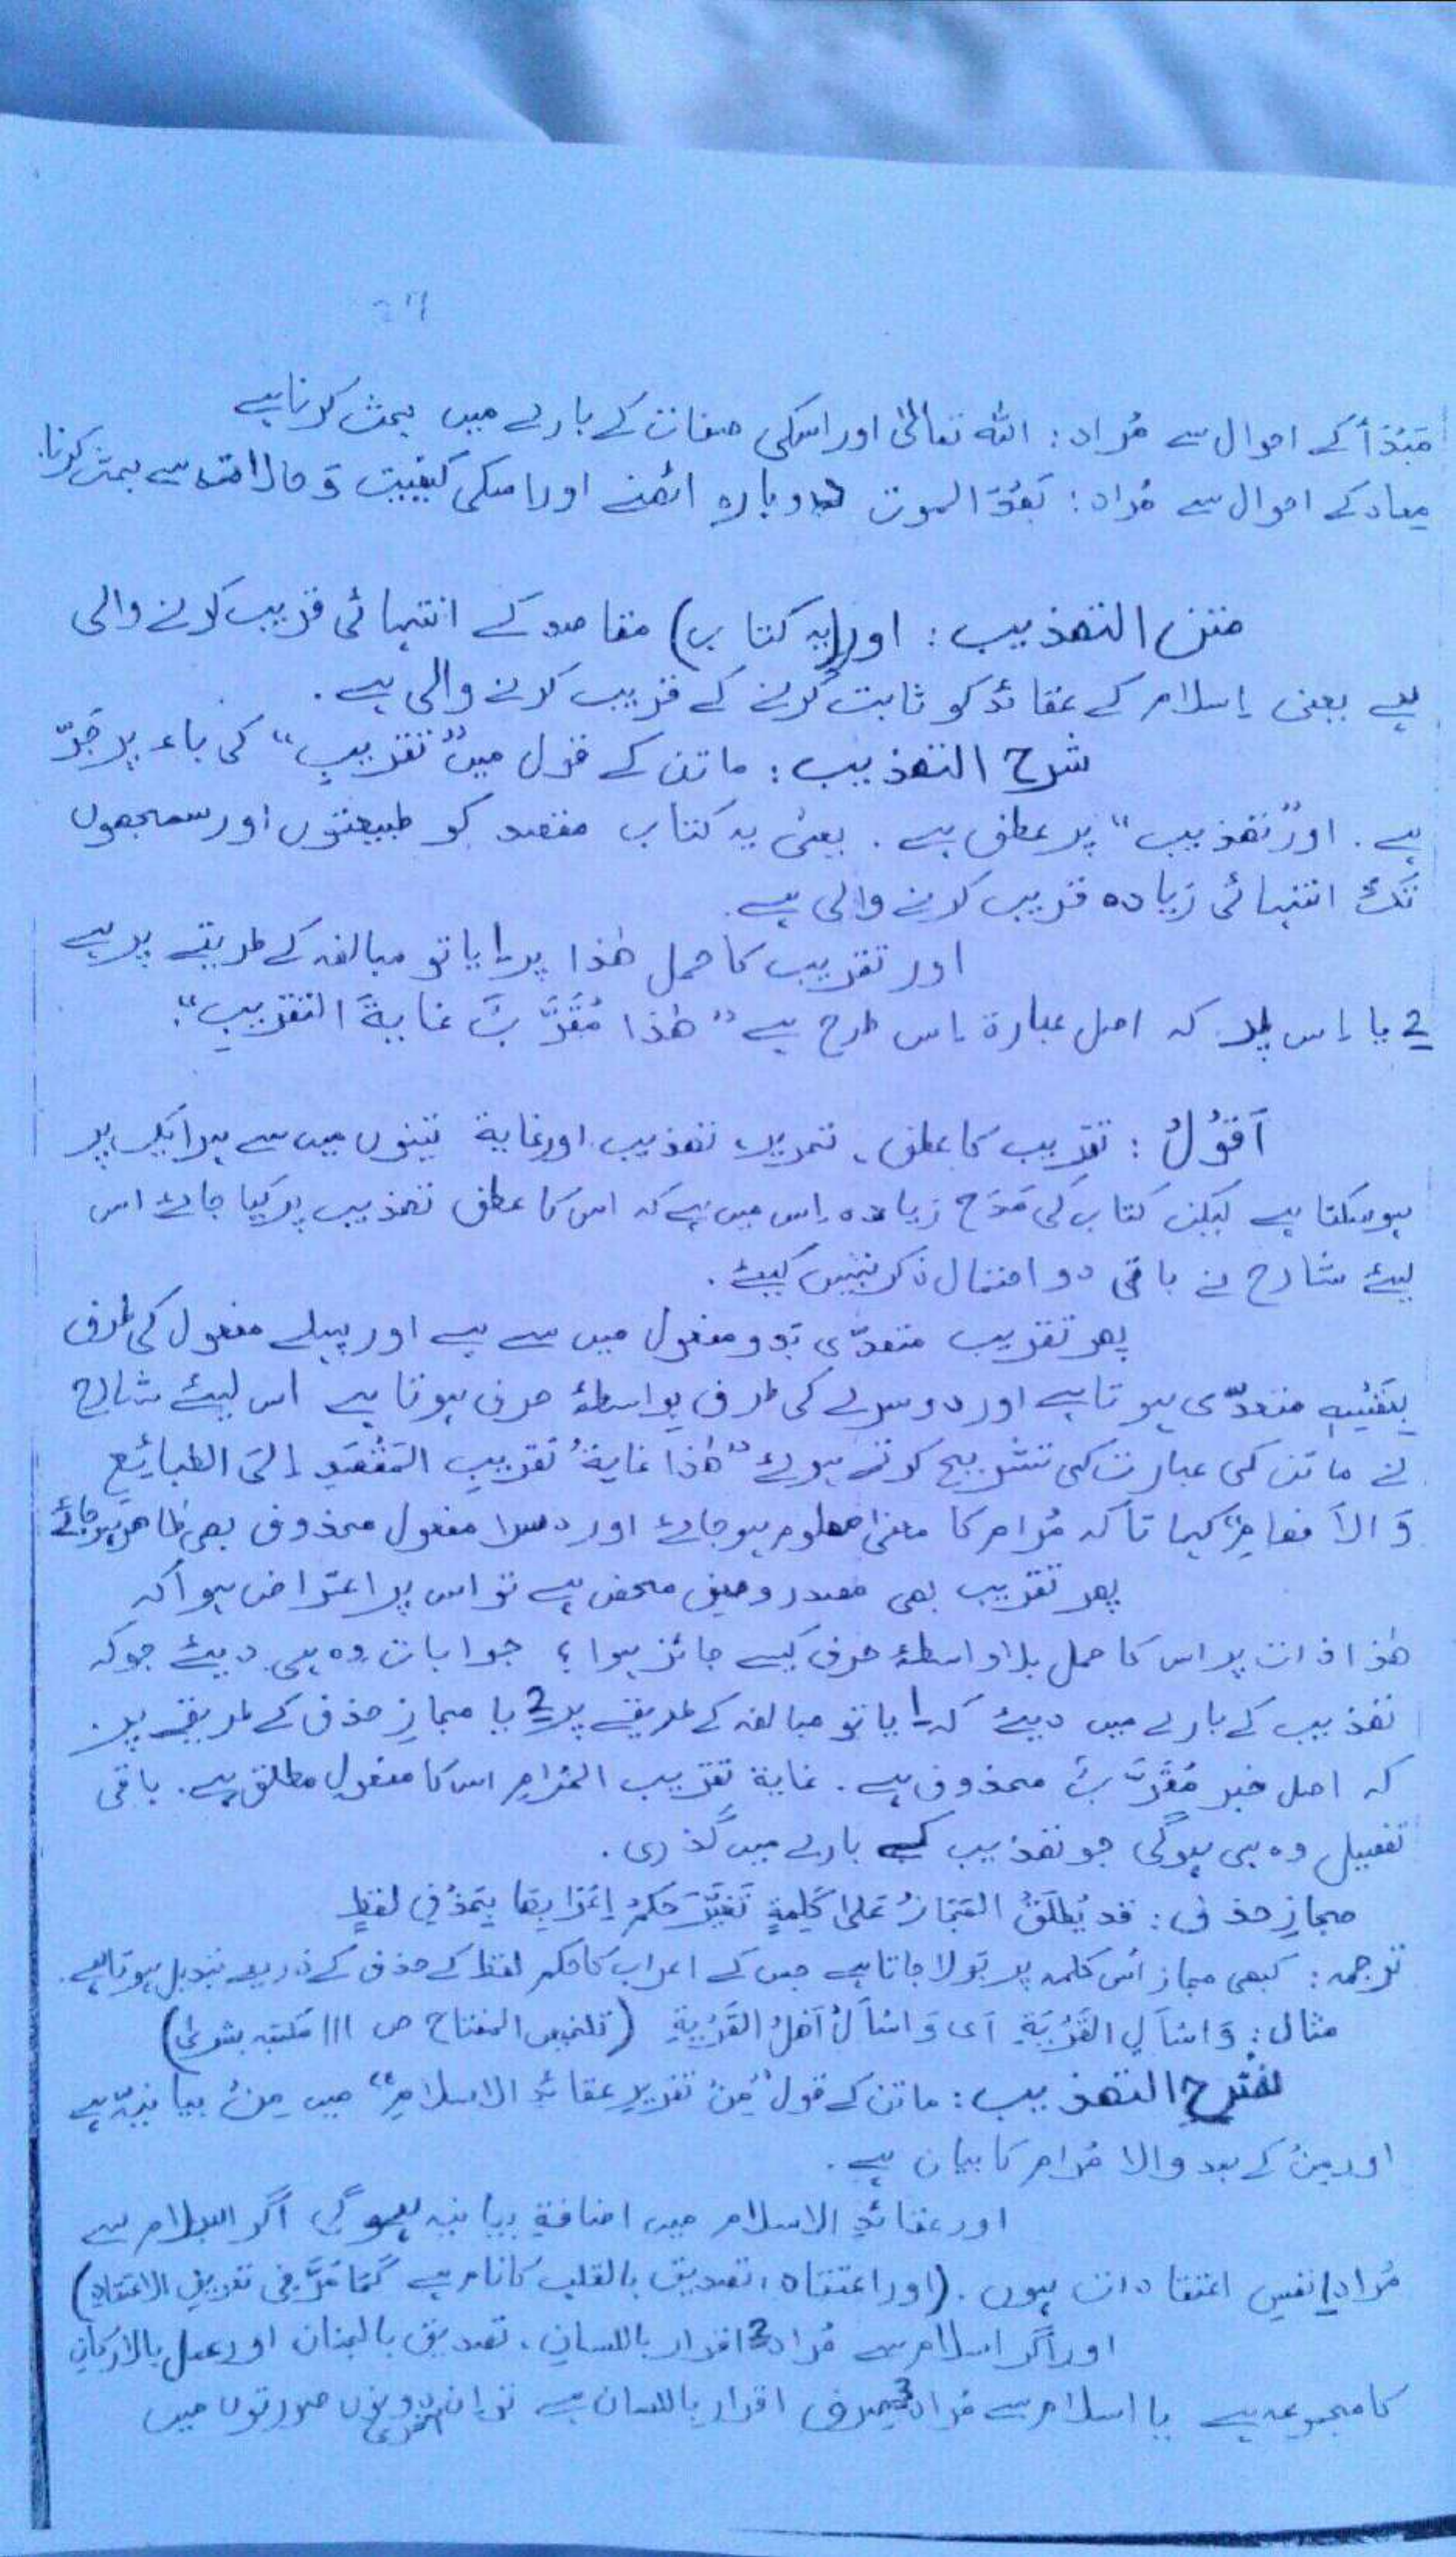 مَبْدَأ کے احوال سے مُراد: اللہ تعالیٰ اور اسکی صفات کے بارے میں بحث کرنا ہے
معاد کے احوال سے مُراد: بَعْدَ الموت دوبارہ اٹھنے اور اسکی کیفیت وَ حالات سے بحث کرنا.
متن التھذیب: اور (یہ کتاب) مقاصد کے انتہائی قریب کرنے والی
ہے یعنی اِسلام کے عقائد کو ثابت کرنے کے قریب کرنے والی ہے.
شرح التھذیب: ماتن کے قول میں "تقریبِ" کی باء پر جَرّ
ہے. اور "تھذیب" پر عطف ہے. یعنی یہ کتاب مقصد کو طبیعتوں اور سمجھوں
تَک انتہائی زیادہ قریب کرنے والی ہے.
اور تقریب کا حمل ھٰذا پر 1 یا تو مبالغہ کے طریقے پر ہے
2 یا اِس پر کہ اصل عبارۃ اِس طرح ہے "ھٰذا مُقَرَّبٌ غایۃَ التقریبِ".
اَقُوْلُ: تقریب کا عطف، تحریر، تھذیب اور غایۃ تینوں میں سے ہر ایک پر
ہو سکتا ہے لیکن کتاب کی مَدَح زیادہ اِس میں ہے کہ اس کا عطف تھذیب پر کیا جائے اس
لیئے شارح نے باقی دو احتمال ذکر نہیں کیئے.
پھر تقریب متعدّی بَدو مفعول میں سے ہے اور پہلے مفعول کی طرف
بِنَفْسِہٖ متعدّی ہوتا ہے اور دوسرے کی طرف بواسطۂ حرف ہوتا ہے اس لیئے شارح
نے ماتن کی عبارت کی تشریح کرتے ہوئے "ھٰذا غایۃُ تقریبِ المَقْصَدِ اِلَی الطبائِعِ
وَ الاَفھامِ" کہا تاکہ مُرام کا معنیٰ معلوم ہو جائے اور دوسرا مفعول محذوف بھی ظاھر ہو جائے
پھر تقریب بھی مصدر وصف محض ہے تو اس پر اعتراض ہوا کہ
ھٰذا ذات پر اس کا حمل بلا واسطۂ حرف کیسے جائز ہوا؟ جوابات وہ ہی دیئے جو کہ
تھذیب کے بارے میں دیئے کہ 1 یا تو مبالغہ کے طریقے پر 2 یا مجازِ حذف کے طریقے پر.
کہ اصل خبر مُقَرَّبٌ محذوف ہے. غایۃ تقریب المَرامِ اس کا مفعولِ مطلق ہے. باقی
تفصیل وہ ہی ہوگی جو تھذیب کے بارے میں گذری.
مجازِ حذف: قد یُطلَقُ المَجَازُ عَلیٰ کَلِمَۃٍ تَغَیَّرَ حکمُ اِعْرَابِھَا بِحَذْفِ لفظٍ
ترجمہ: کبھی مجاز اُس کلمہ پر بولا جاتا ہے جس کے اعراب کا حکم لفظ کے حذف کے ذریعے تبدیل ہوتا ہے.
مثال: وَاسْاَلِ القَرْیَۃَ اَی وَاسْاَلْ اَھْلَ القَرْیَۃِ (تلخیص المفتاح ص 111 مکتبہ بشریٰ)
شرح التھذیب: ماتن کے قول "مِنْ تقریرِ عقائدِ الاسلامِ" میں مِنْ بیانیّہ ہے
اور مِنْ کے بعد والا مُرام کا بیان ہے.
اور عقائدِ الاسلام میں اضافۃِ بیانیہ ہوگی اگر اسلام سے
مُراد 1 نفسِ اعتقادات ہوں. (اور اعتقاد، تصدیق بالقلب کا نام ہے کَمَا مَرَّ فِی تعریفِ الاعتقادِ)
اور اگر اسلام سے مُراد 2 اقرار باللسان، تصدیق بالجنان اور عمل بالارکان
کا مجموعہ ہے یا اسلام سے مُراد 3 صرف اقرار باللسان ہے تو ان دونوں صورتوں میں